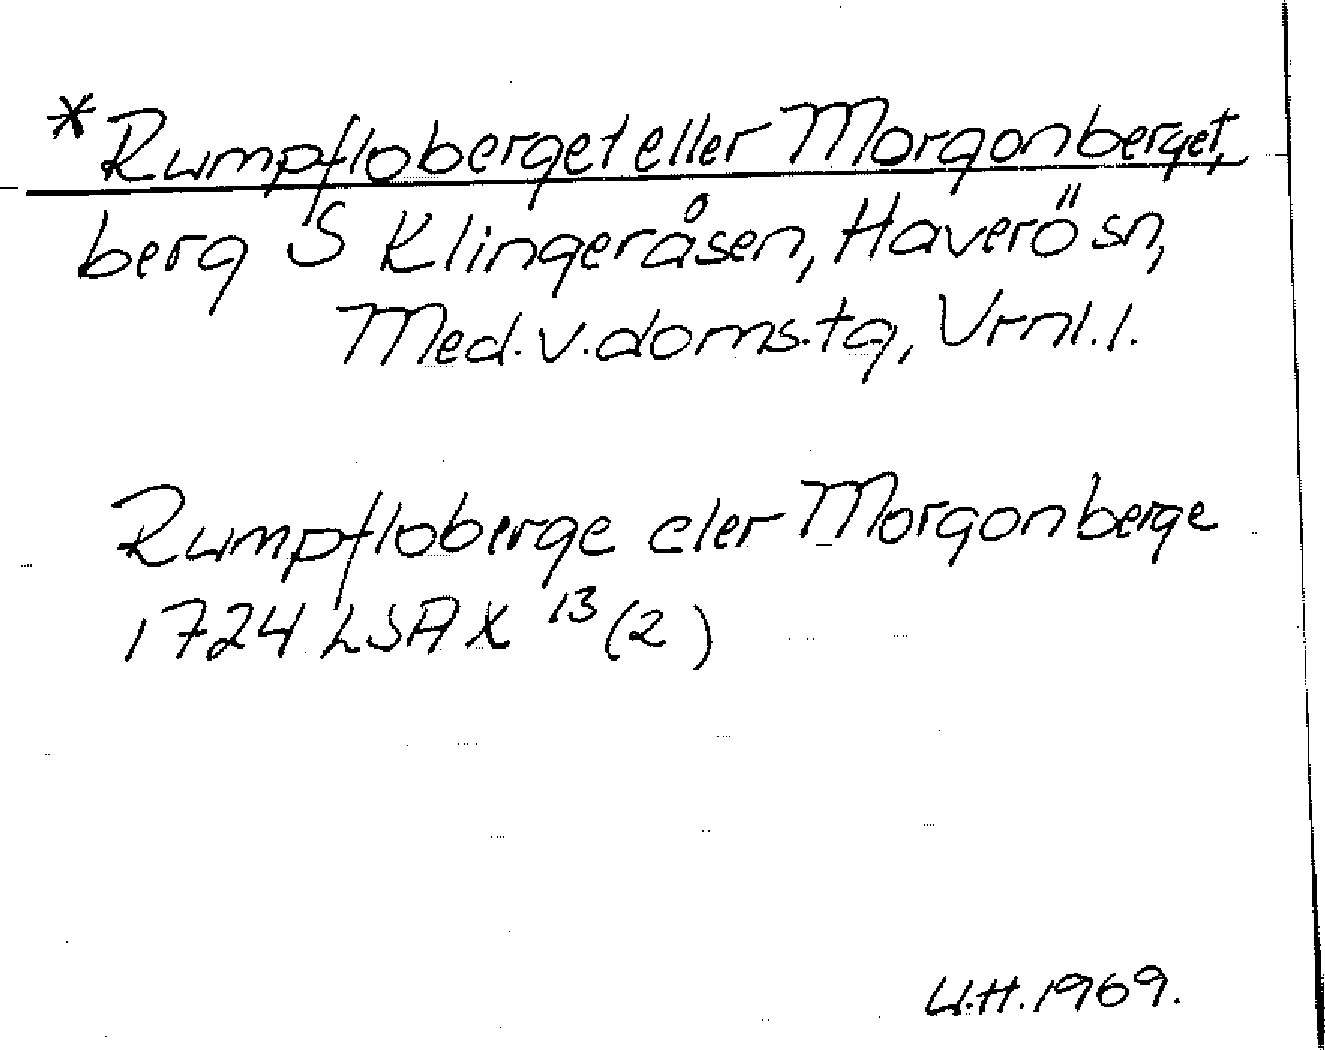 *Rumpfloberget eller Morgonberget,
berg S Klingeråsen, Haverö sn,
Med. v. doms. tg, Vrnl. l.
Rumpfloberge eler Morgonberge
1724 LSA X 13 (2)
U.H. 1969.